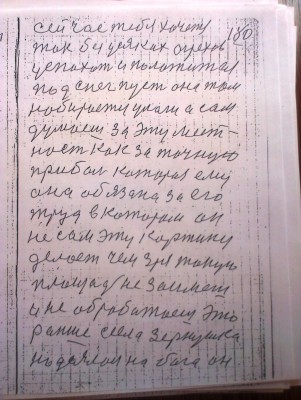 180
сейчас тебя хочет
так бу всяких грехов
успахот и положитал
под снег пуст она там
набираети упала а сам
думаеш за эту мест-
ност как за точную
прибол которая ему
она обязана за его
труд в котором он
не сам эту картину
делает чем зря такую
площад не заимет
и не обработаеш это
ранше сеяла зернушка
надеялся на бога он